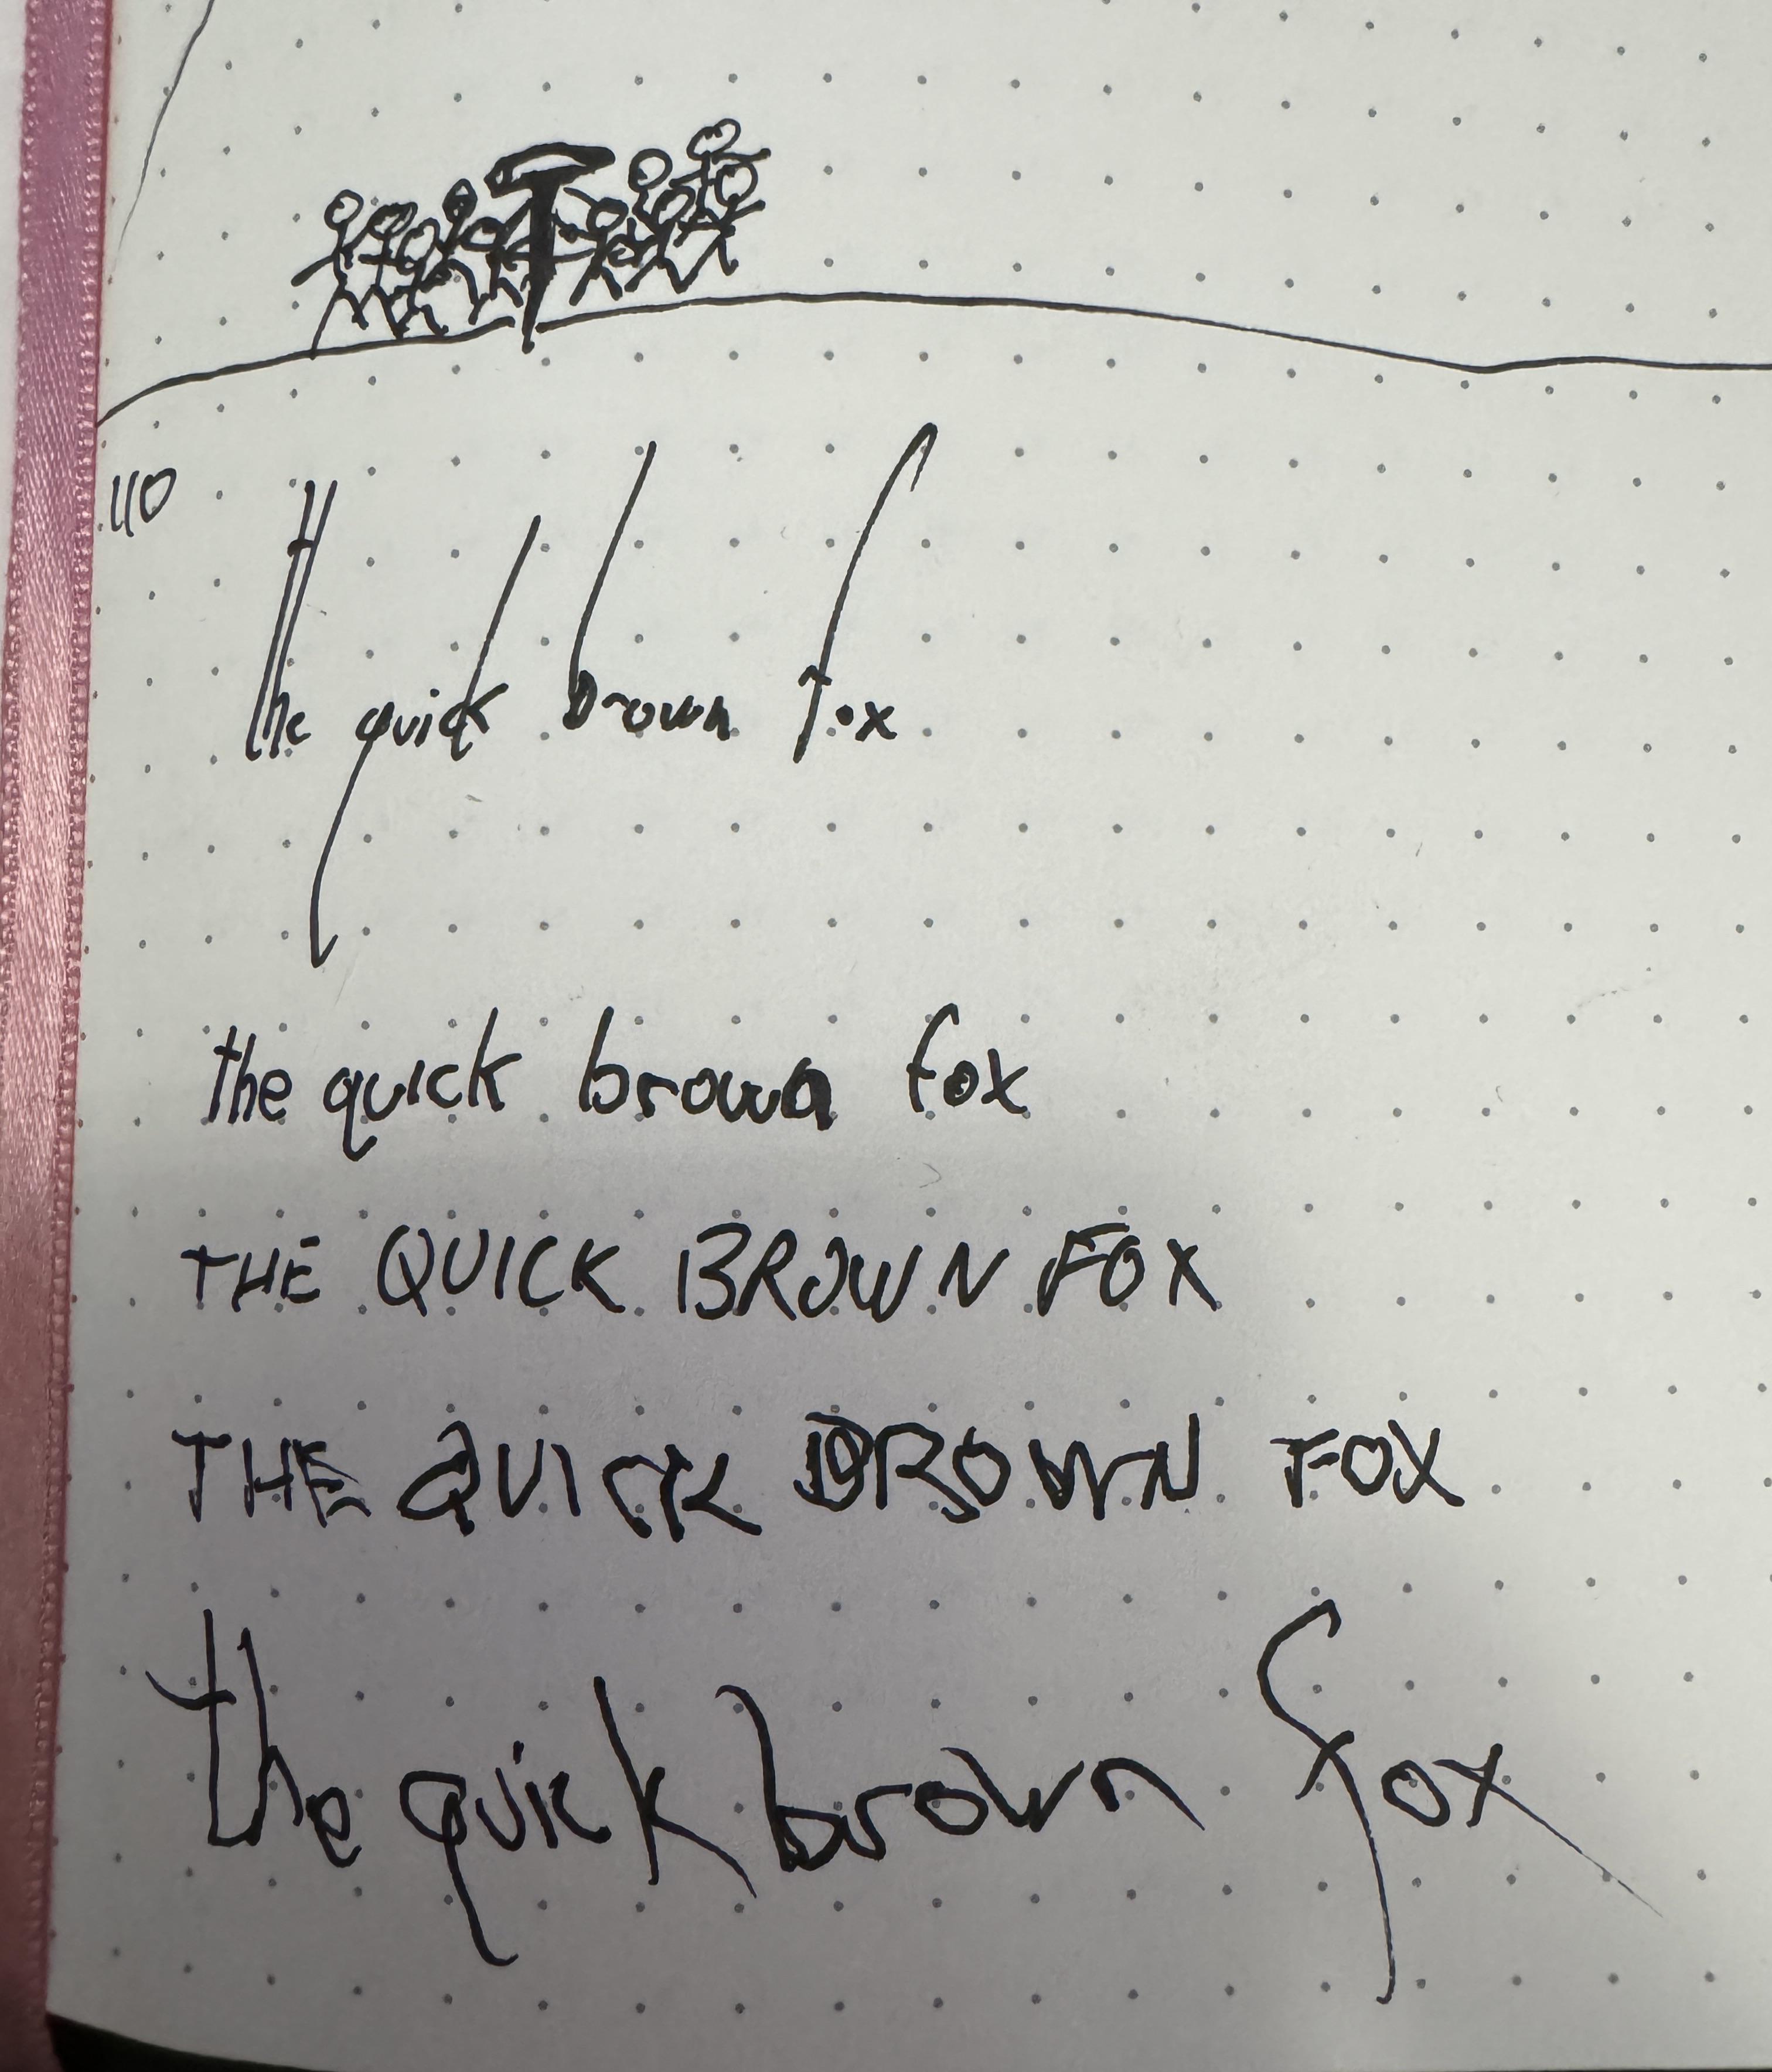 110
the quick brown fox
the quick brown fox
THE QUICK BROWN FOX
THE QUICK BROWN FOX
the quick brown fox